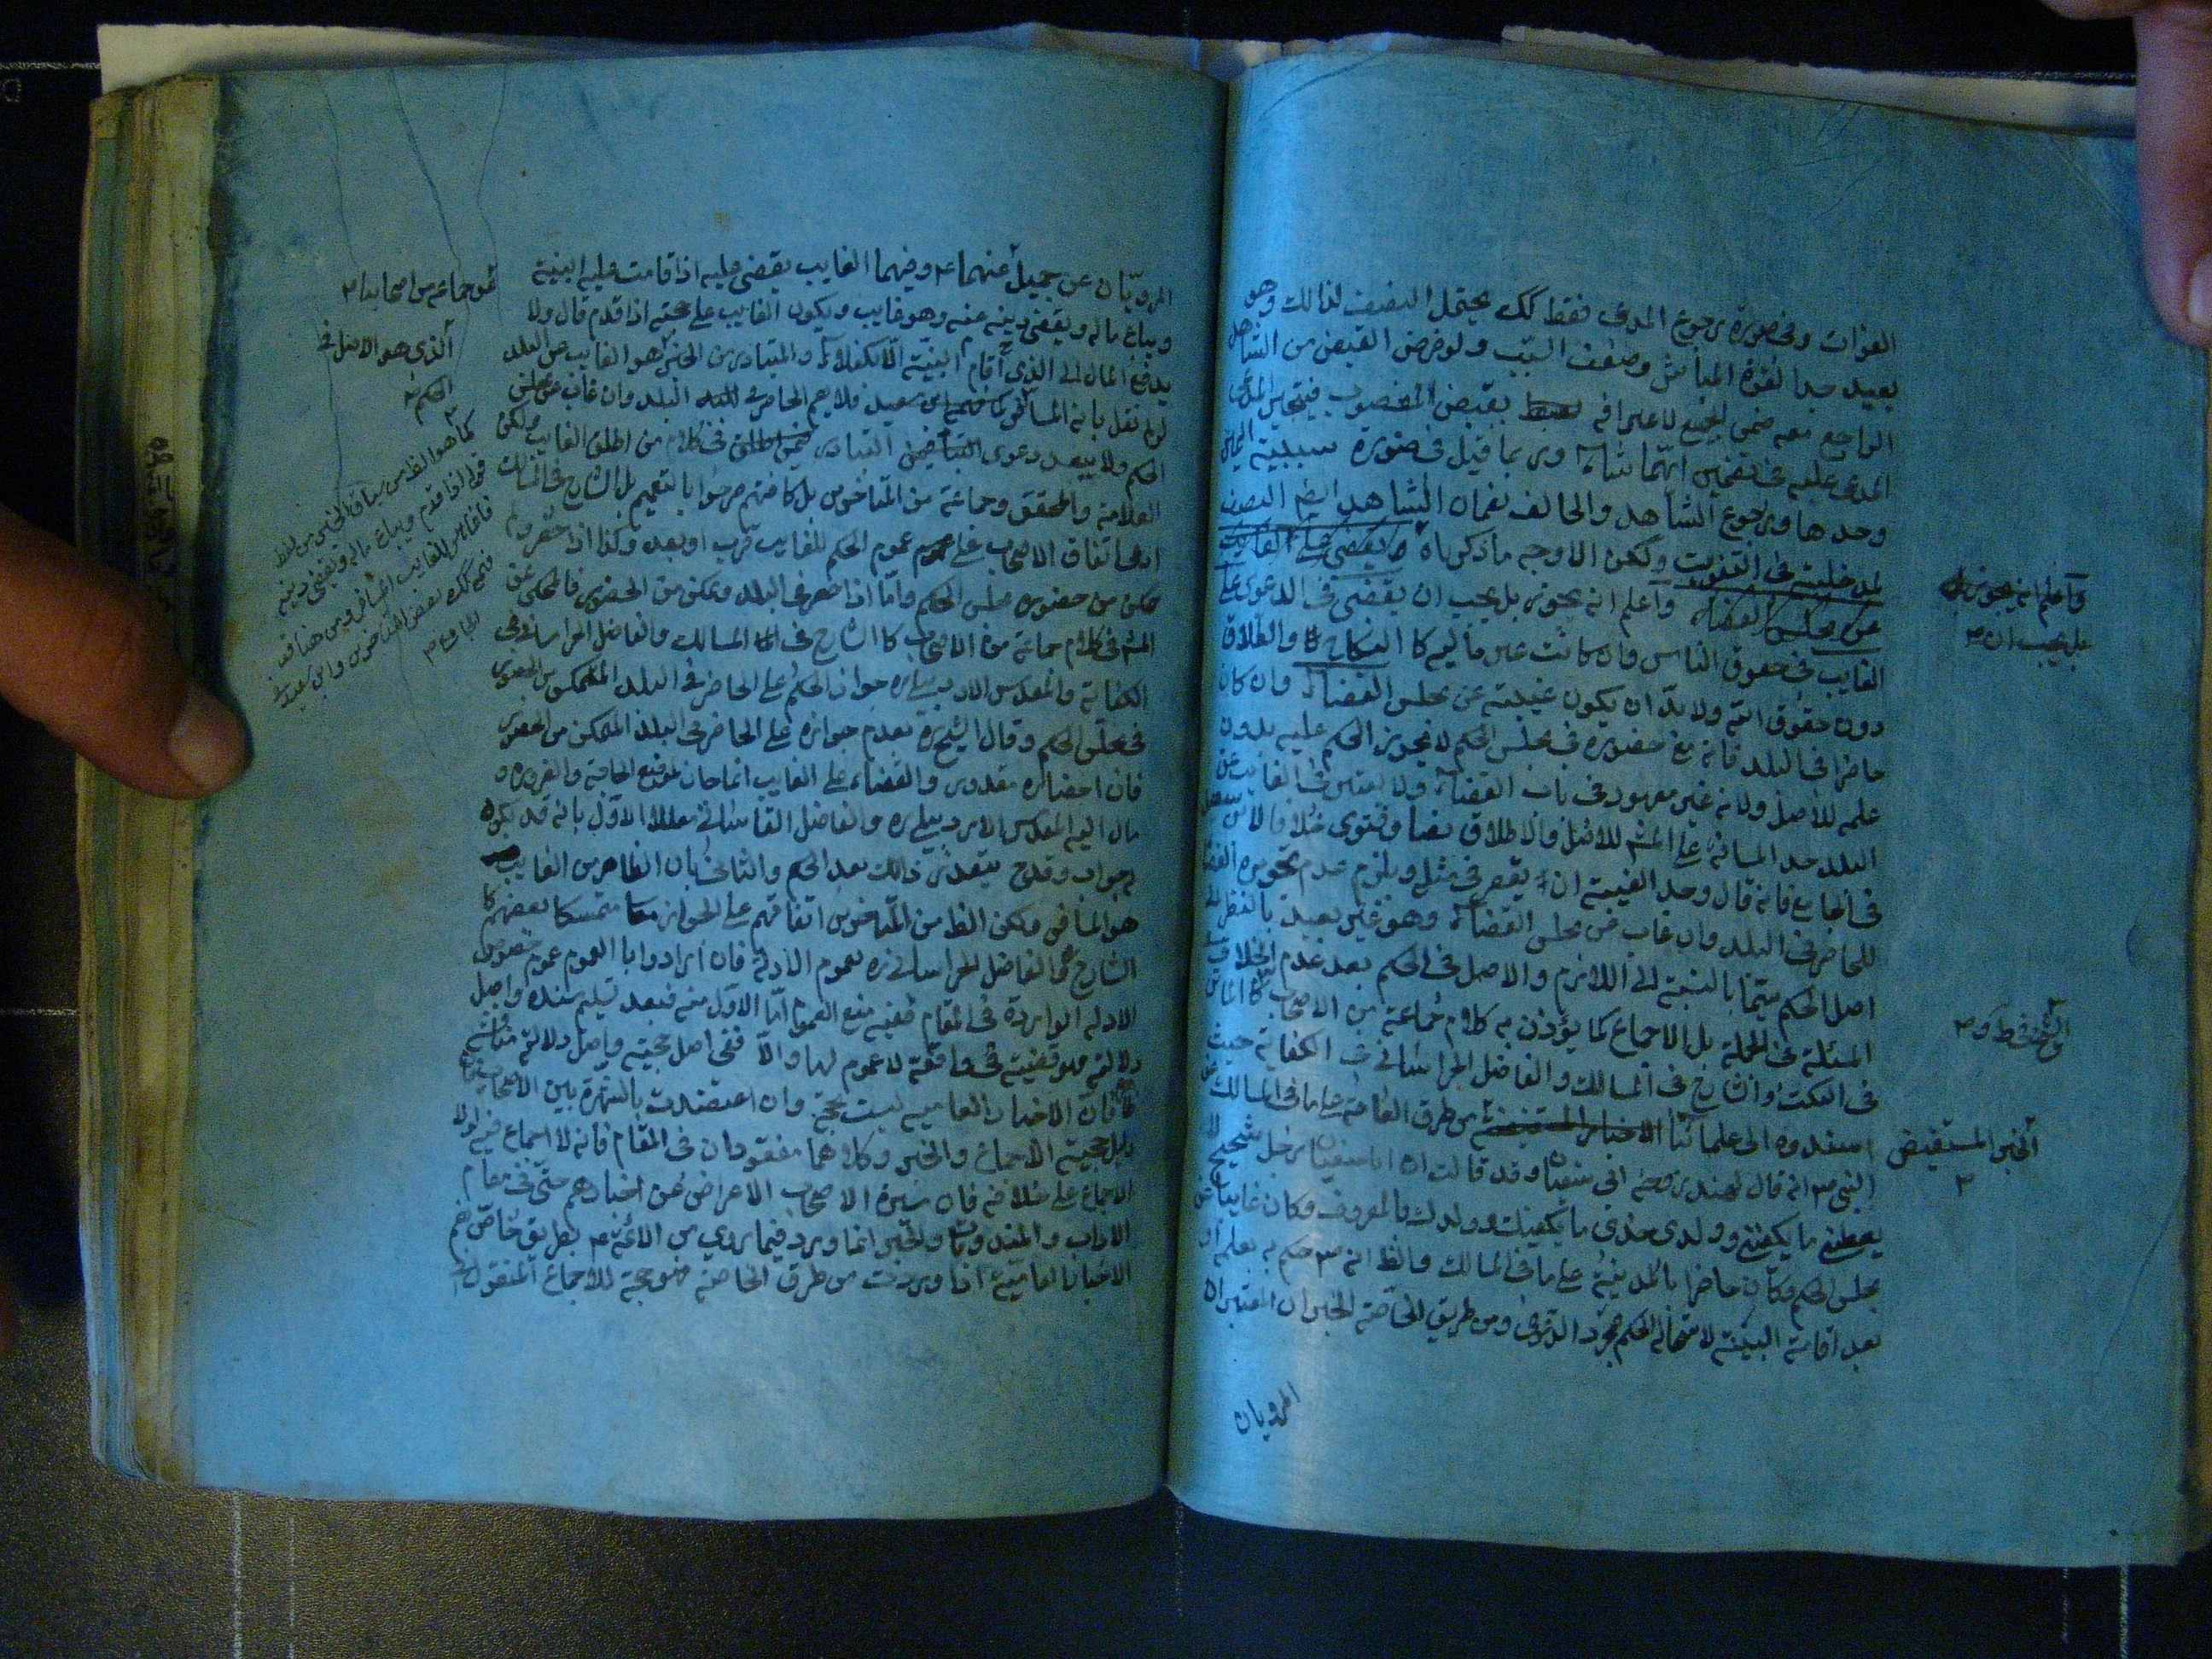 الغرات وفي صورة رجوع المدعى فقط كك يحتمل التضيف لذالك وهو
بعيد جدا لقوة المباشر وضعف السبب ولو فرض القبض من الشاهد
الراجع معه ضمن الجميع لاعترافه بقبض المغصوب فيتخير المدعى
المدعى عليه في تضمين ايهما شاء وربما قيل في صورة سببية اليمين
وحدها ورجوع الشاهد والحالف بضمان الشاهد ايضا النصف
لمدخليته في التفويت ولكن الاوجه ما ذكرناه ويقضى على الغايب
عن مجلس القضاء واعلم انه يجوز بل يجب ان يقضى في الدعوى على
الغايب في حقوق الناس وان كانت غير مالية كالنكاح والطلاق
دون حقوق الله ولا بد ان يكون غيبته عن مجلس القضاء وان كان
حاضرا في البلد فانه مع حضوره في مجلس الحكم لا يجوز الحكم عليه بدون
علمه للاصل ولانه غير معهود في باب القضاء ولا يعتبر في الغايب عن
البلد حد المسافة على المشهور للاصل والاطلاق نصا وفتوى خلافا لابن سعيد
في الجامع فانه قال وحد الغيبة ان يقصر في مثله ويلزم عدم تجويزه القضاء
للحاضر في البلد وان غاب عن مجلس القضاء وهو غير بعيد بالنظر الى
اصل الحكم سيما بالنسبة الى اللازم والاصل في الحكم بعد عدم الخلاف في
المسئلة في الجملة بل الاجماع كما يؤذن به كلام جماعة من الاصحاب كالماتن
في النكت والشارح في المسالك والفاضل الخراساني في الكفاية حيث
اسندوه الى علمائنا الاخبار المستفيضة من طرق العامة على ما في المسالك عن
النبي ص انه قال لهند زوجة ابي سفيان وقد قالت ان ابا سفيان رجل شحيح لا
يعطيني ما يكفيني وولدي خذي ما يكفيك وولدك بالمعروف وكان غايبا عن
مجلس الحكم وكان حاضرا بالمدينة على ما في المسالك والظ انه ص حكم به بعلمه او
بعد اقامة البينة لاستحالة الحكم بمجرد الدعوى ومن طريق الخاصة الخبران المعتبران
المرويان
واعلم انه يجوز بل
بل يجب ان ص
والشيخ في ط و ص
الخبر المستفيض
المرويان عن جميل عنهما ع وفيهما الغايب يقضى عليه اذا قامت عليه البينة
ويباع ماله ويقضى دينه عنه وهو غايب ويكون الغايب على حجته اذا قدم قال ولا
يدفع المال الى الذي اقام البينة الا بكفلاء والمتبادر من الخبر هو الغايب عن البلد
لو لم نقل بانه المسافر كما فهمه ابن سعيد فلا يعم الحاضر في البلد وان غاب عن مجلس
الحكم ولا يبعد دعوى التبادر في كلام من اطلق الغايب ولكن
العلامة والمحقق وجماعة من المتاخرين بل كافتهم صرحوا بالتعميم بل الشارح في المسالك
ادعى اتفاق الاصحاب على عموم الحكم للغايب قرب او بعد وكذا اذا حضر ولم
يتمكن من حضوره مجلس الحكم واما اذا حضر في البلد وتمكن من الحضور فالمحكى عن
المشهور في كلام جماعة من الاصحاب كالشارح في المسالك والفاضل الخراساني في
الكفاية والمقدس الاردبيلي ره جواز الحكم على الحاضر في البلد المتمكن من الحضور
في مجلس الحكم وقال الشيخ ره بعدم جوازه على الحاضر في البلد المتمكن من الحضور
فان احضاره مقدور والقضاء على الغايب انما جاز لموضع الحاجة والضرورة و
مال اليه المقدس الاردبيلي ره والفاضل القاساني معللا الاول بانه قد يكون
له جواب وقدح يتعذر ذالك بعد الحكم والثاني بان الظاهر من الغايب
هو المسافر ولكن الظ من المتاخرين اتفاقهم على الجواز متمسكا بعضهم كا
الشارح والفاضل الخراساني ره بعموم الادلة فان ارادوا بالعموم عموم خصوص
الادلة الواردة في المقام ففيه منع العموم اما الاول منه فبعد تسليم سنده واصل
دلالته فهو قضية في واقعة لا عموم لها والا ففي اصل حجيته واصل دلالته مناقشة
فان الاخبار العامية ليست بحجة وان اعتضدت بالشهرة بين الاصحاب
دليل حجية الاجماع والخبر وكلاهما مفقودان في المقام فانه لا اجماع فيه لولا
الاجماع على خلافه فان سيرة الاصحاب الاعراض عن اخبارهم حتى في مقام
الاداب والمندوبات والخبر انما ورد فيما يروي من الائمة ع بطريق خاص نعم
الاخبار العامية اذا وردت من طرق الخاصة موجبة للاجماع المنقول
عن جماعة من اصحابنا ص
الذي هو الاصل في
الحكم
كما هو الظاهر من سياق الخبر من لفظ
قوله اذا قدم ويباع ماله ويقضى دينه